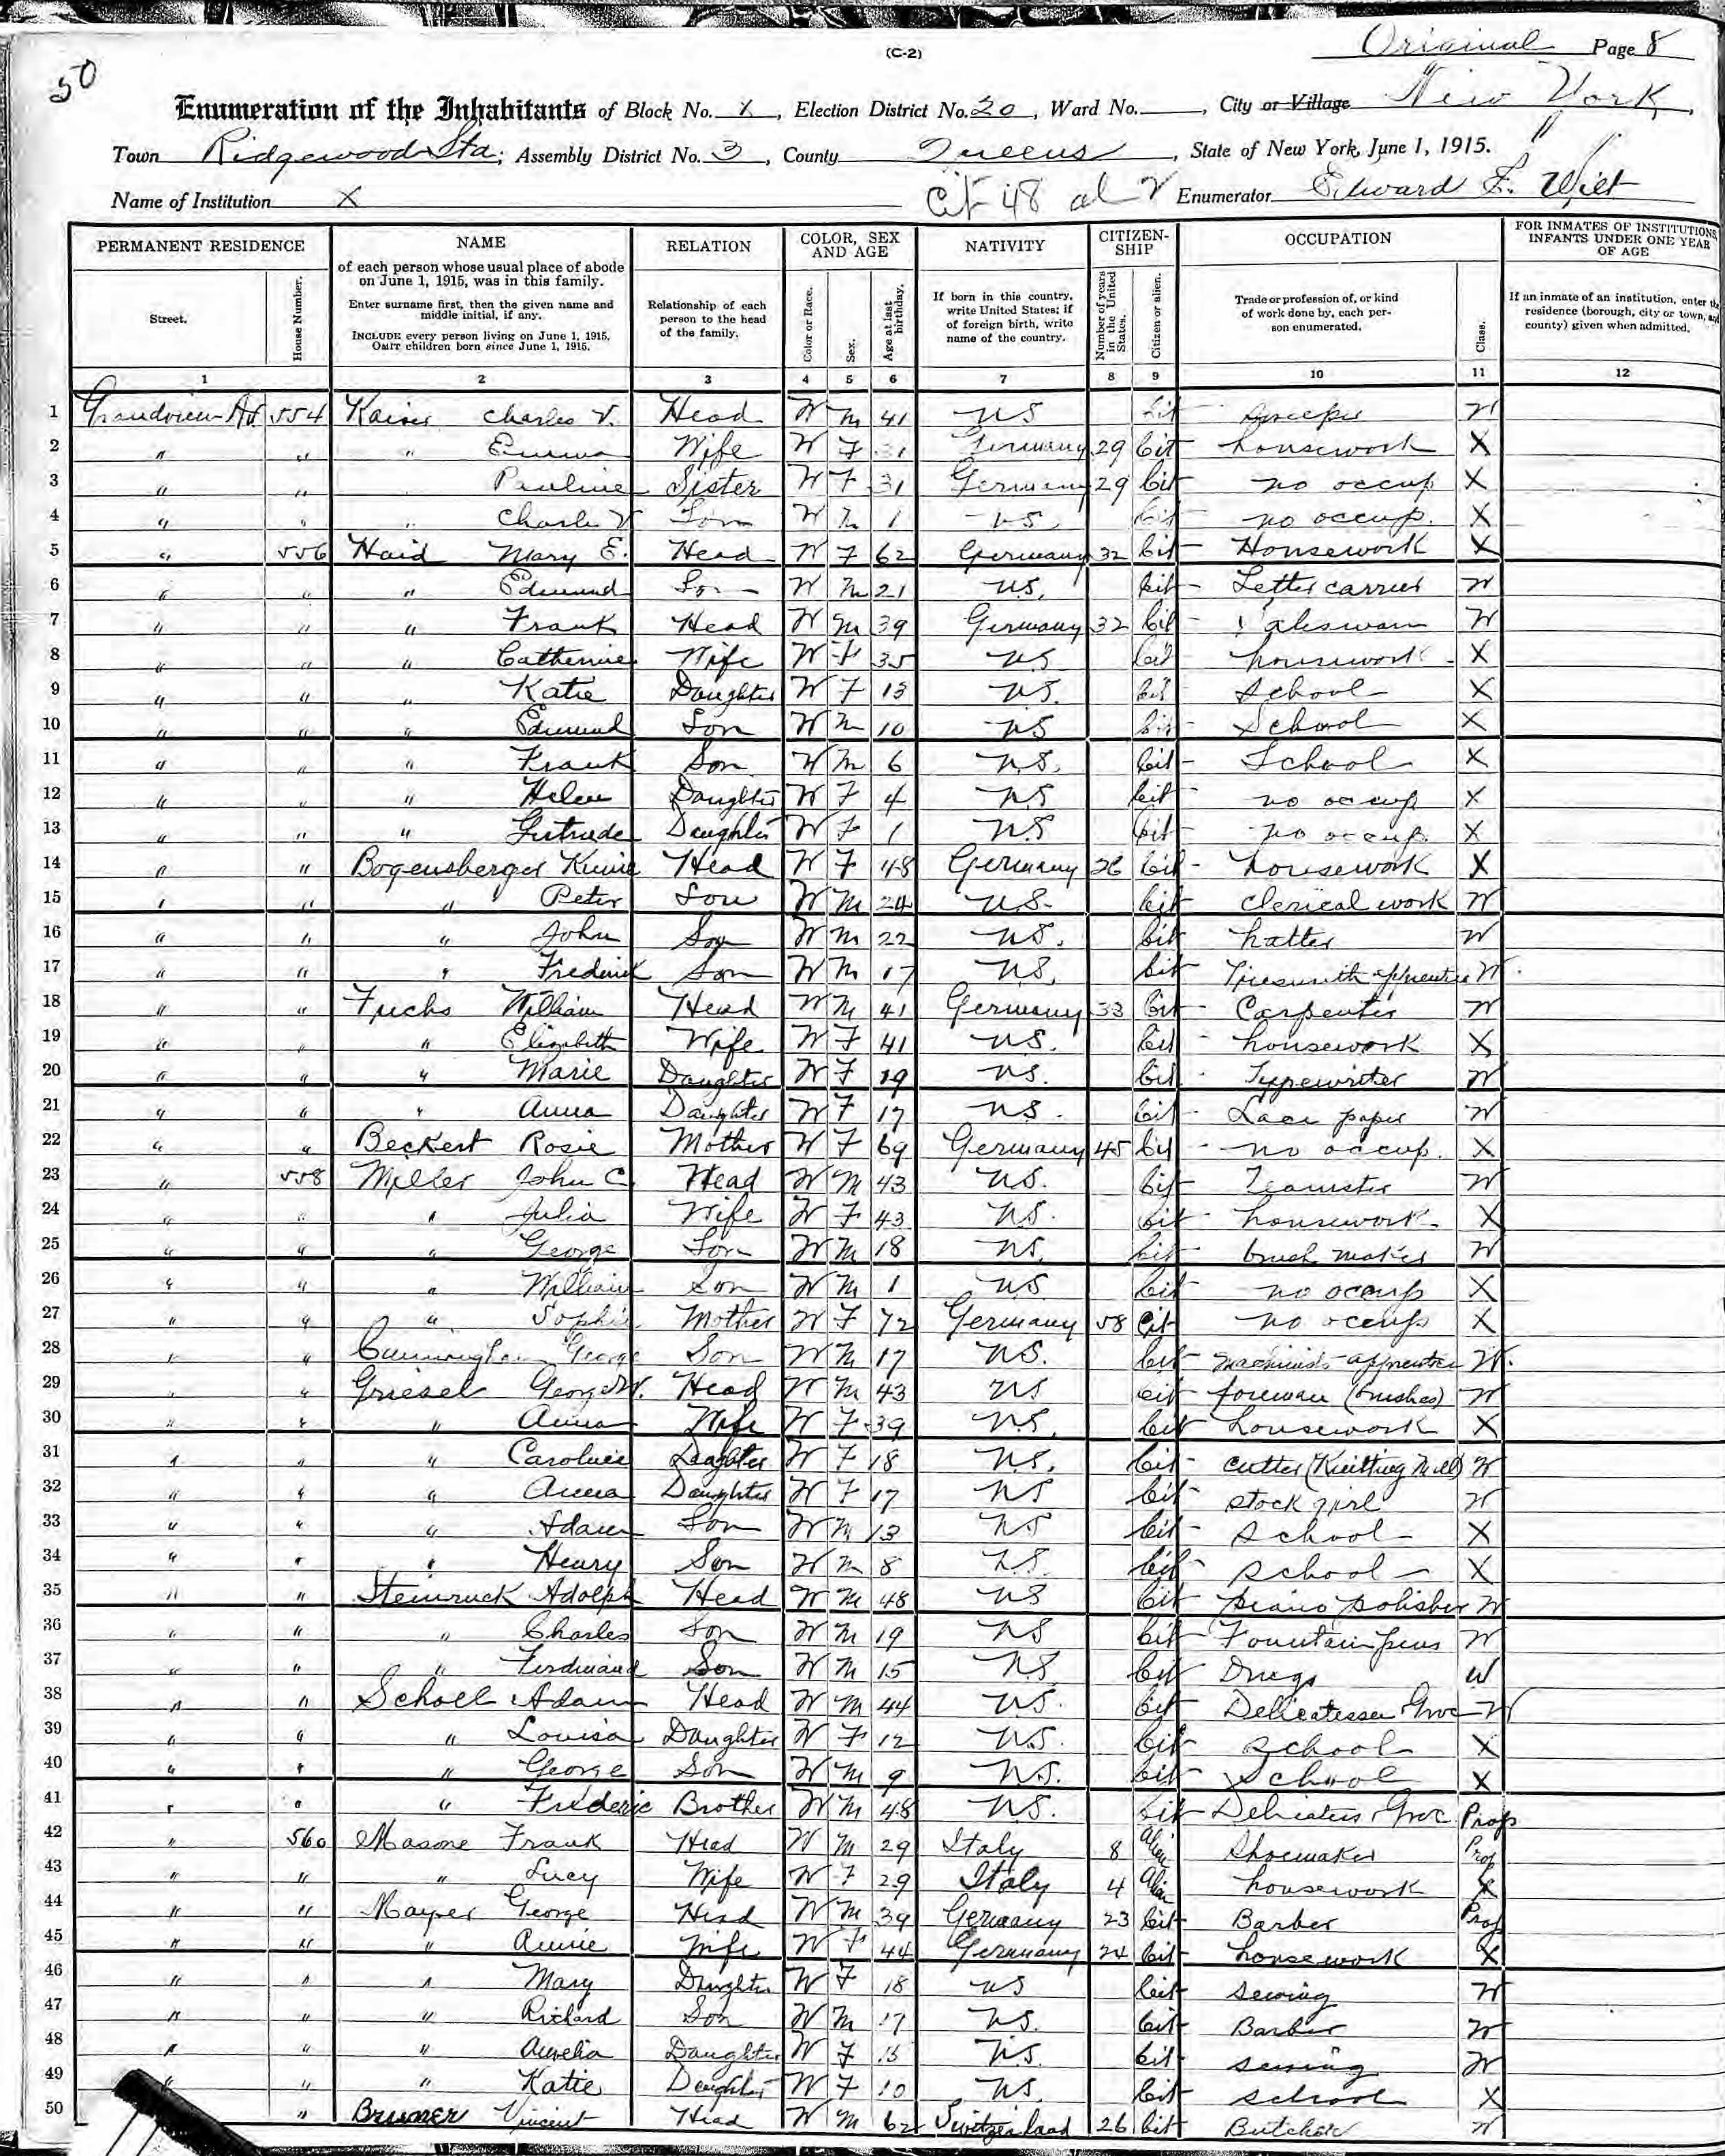 50
(C-2)
Original Page 8
Enumeration of the Inhabitants of Block No. X, Election District No. 20, Ward No. , City or Village New York,
Town Ridgewood Sta; Assembly District No. 3, County Queens, State of New York, June 1, 1915. "
Name of Institution X Cit 48 al 2 Enumerator Edward F.
PERMANENT RESIDENCE NAME RELATION COLOR, SEX AND AGE NATIVITY CITIZEN-SHIP OCCUPATION FOR INMATES OF INSTITUTIONS, INFANTS UNDER ONE YEAR OF AGE
Street.
House Number.
of each person whose usual place of abode on June 1, 1915, was in this family.
Enter surname first, then the given name and middle initial, if any.
INCLUDE every person living on June 1, 1915. OMIT children born since June 1, 1915.
Relationship of each person to the head of the family.
Color or Race.
Sex.
Age at last birthday.
If born in this country, write United States; if of foreign birth, write name of the country.
Number of years in the United States.
Citizen or alien.
Trade or profession of, or kind of work done by, each person enumerated.
Class.
If an inmate of an institution, enter the residence (borough, city or town, and county) given when admitted.
1 2 3 4 5 6 7 8 9 10 11 12
1 Grandview Av. 554 Kaiser Charles V. Head W M 41 US Cit W
2 " " " Emma Wife W F 31 Germany 29 Cit housework X
3 " " Pauline Sister W F 31 Germany 29 Cit no occup X
4 " " " Charles V Son W M 1 US Cit no occup. X
5 " 556 Haid Mary E. Head W F 62 Germany 32 Cit Housework X
6 " " " Edmund Son W M 21 US. Cit Letter carrier W
7 " " " Frank Head W M 39 Germany 32 Cit Salesman W
8 " " " Catherine Wife W F 35 US Cit housework X
9 " " " Katie Daughter W F 13 US. Cit School X
10 " " " Edmund Son W M 10 US Cit School X
11 " " " Frank Son W M 6 US. Cit School X
12 " " " Helen Daughter W F 4 US Cit no occup X
13 " " " Gertrude Daughter W F 1 US Cit no occup. X
14 " " Bogensberger Head W F 48 Germany 26 Cit housework X
15 " " " Peter Son W M 24 US. Cit Clerical work W
16 " " " John Son W M 22 US. Cit hatter W
17 " " " Frederick Son W M 17 US. Cit apprentice W.
18 " " Fuchs William Head W M 41 Germany 33 Cit Carpenter W
19 " " " Elizabeth Wife W F 41 US. Cit housework X
20 " " " Marie Daughter W F 19 US. Cit Typewriter W
21 " " " Anna Daughter W F 17 US. Cit Lace paper W
22 " " Beckert Rosie Mother W F 69 Germany 45 Cit no occup. X
23 " 558 Miller John C. Head W M 43 US. Cit Teamster W
24 " " " Julia Wife W F 43 US. Cit housework X
25 " " " George Son W M 18 US. Cit brush maker W
26 " " " William Son W M 1 US Cit no occup X
27 " " " Sophie Mother W F 72 Germany 58 Cit no occup X
28 " " Cunningham George Son W M 17 US. Cit machinist apprentice W.
29 " " Griesel George W. Head W M 43 US Cit foreman (brushes) W
30 " " " Anna Wife W F 39 US. Cit housework X
31 " " " Caroline Daughter W F 18 US. Cit cutter (Knitting Mill) W
32 " " " Anna Daughter W F 17 US Cit stock girl W
33 " " " Adam Son W M 13 US Cit School X
34 " " " Henry Son W M 8 US. Cit School X
35 " " Steinruck Adolph Head W M 48 US Cit piano polisher W
36 " " " Charles Son W M 19 US Cit Fountain pens W
37 " " " Ferdinand Son W M 15 US Cit Drugs W
38 " " Scholl Adam Head W M 44 US. Cit Delicatessen Groc W
39 " " " Louisa Daughter W F 12 US. Cit School X
40 " " " George Son W M 9 US. Cit School X
41 " " " Frederic Brother W M 48 US. Cit Groc Prop
42 " 560 Masone Frank Head W M 29 Italy 8 Alien Shoemaker Prop
43 " " " Lucy Wife W F 29 Italy 4 Alien housework X
44 " " Mayer George Head W M 39 Germany 23 Cit Barber Prop
45 " " " Annie Wife W F 44 Germany 24 Cit housework X
46 " " " Mary Daughter W F 18 US Cit sewing W
47 " " " Richard Son W M 17 US. Cit Barber W
48 " " " Aurelia Daughter W F 15 US. Cit sewing W
49 " " " Katie Daughter W F 10 US. Cit school X
50 " Bruner Vincent Head W M 62 Switzerland 26 Cit Butcher W